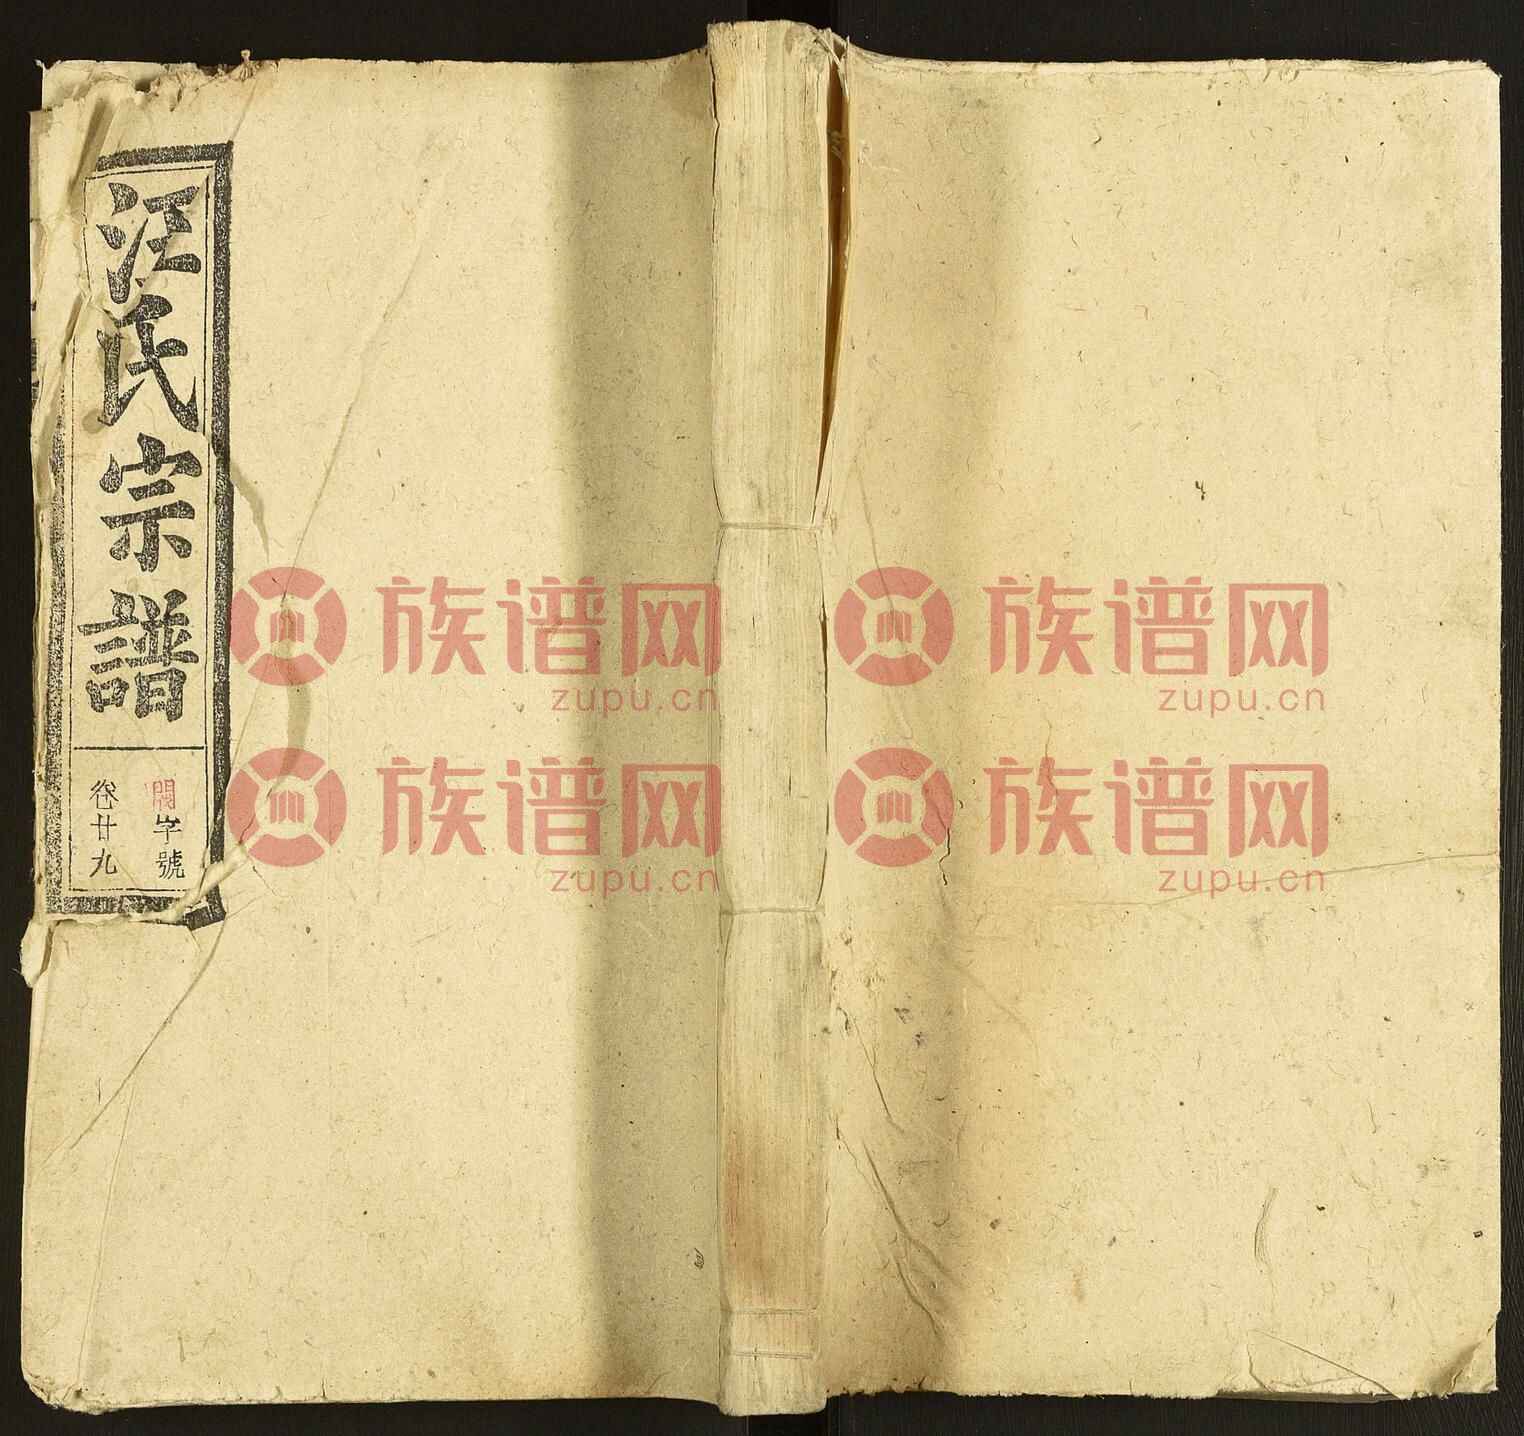 汪氏宗譜
閥字號
卷廿九
族谱网
zupu.cn
族谱网
zupu.cn
族谱网
zupu.cn
族谱网
zupu.cn